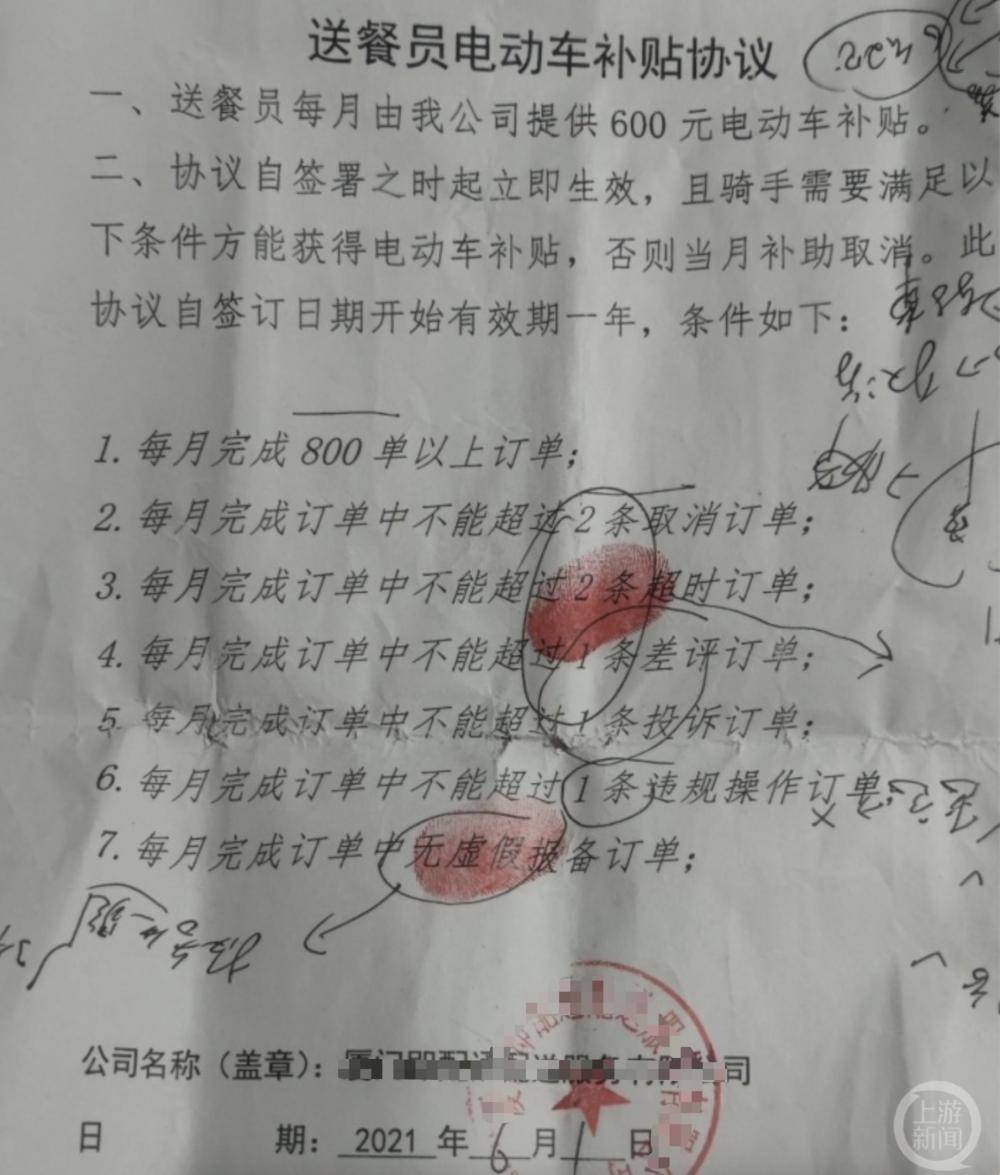 送餐员电动车补贴协议
一、送餐员每月由我公司提供600元电动车补贴。
二、协议自签署之时起立即生效，且骑手需要满足以
下条件方能获得电动车补贴，否则当月补助取消。此
协议自签订日期开始有效期一年，条件如下：
1. 每月完成 800 单以上订单；
2. 每月完成订单中不能超过 2 条取消订单；
3. 每月完成订单中不能超过 2 条超时订单；
4. 每月完成订单中不能超过 1 条差评订单；
5. 每月完成订单中不能超过 1 条投诉订单；
6. 每月完成订单中不能超过 1 条违规操作订单；
7. 每月完成订单中无虚假报备订单；
公司名称（盖章）：
日 期： 2021 年 6 月 1 日
上游
新闻